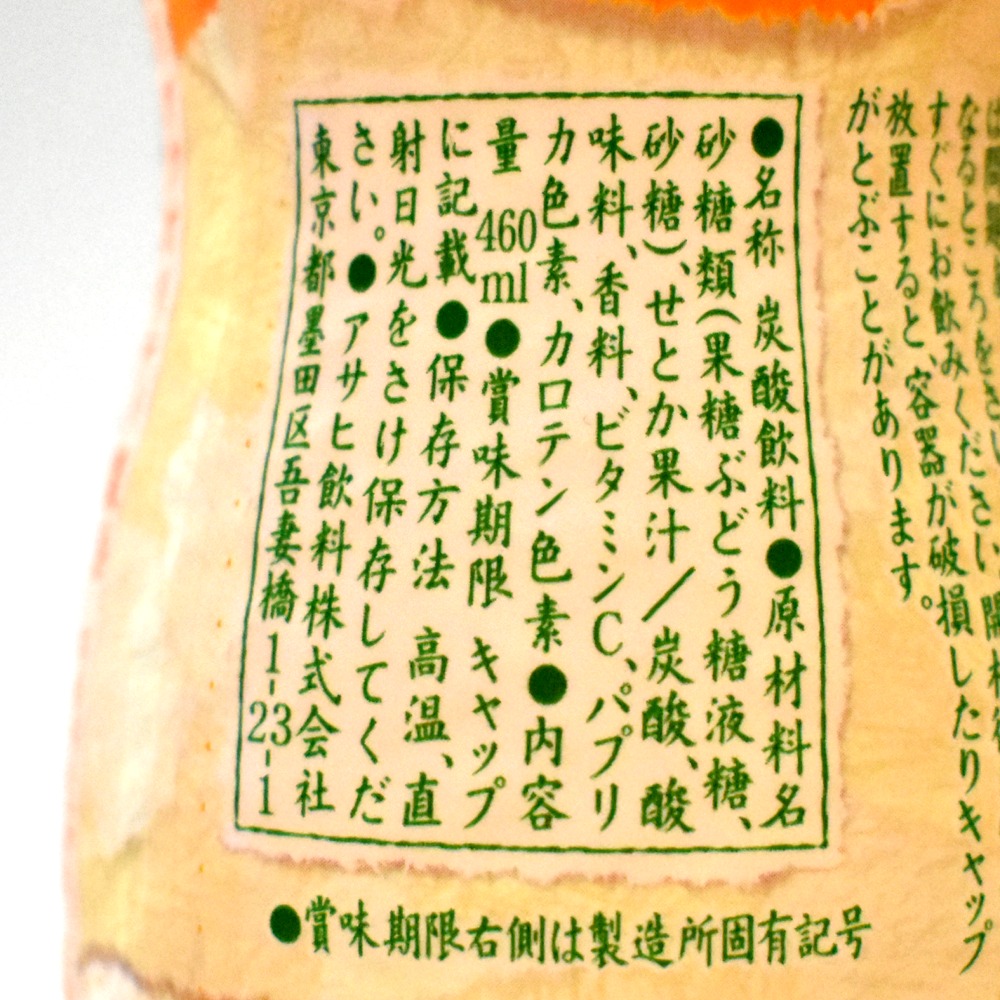 なるところをさ
すぐにお飲みください。開栓
放置すると、容器が破損したりキャップ
がとぶことがあります。
●名称 炭酸飲料●原材料名
砂糖類(果糖ぶどう糖液糖、
砂糖)、せとか果汁/炭酸、酸
味料、香料、ビタミンC、パプリ
カ色素、カロテン色素●内容
量 460ml●賞味期限 キャップ
に記載●保存方法 高温、直
射日光をさけ保存してくだ
さい。●アサヒ飲料株式会社
東京都墨田区吾妻橋1-23-1
●賞味期限右側は製造所固有記号